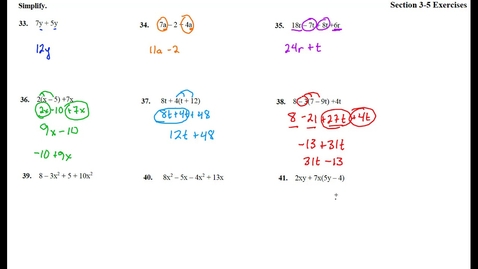 Simplify.
Section 3-5 Exercises
33. 7y + 5y
12y
34. 7a – 2 + 4a
11a - 2
35. 18r – 7t + 8t + 6r
24r + t
36. 2(x – 5) + 7x
2x - 10 + 7x
9x - 10
-10 + 9x
37. 8t + 4(t + 12)
8t + 4t + 48
12t + 48
38. 8 – 3(7 – 9t) + 4t
8 - 21 + 27t + 4t
-13 + 31t
31t - 13
39. 8 – 3x² + 5 + 10x²
40. 8x² – 5x – 4x² + 13x
41. 2xy + 7x(5y – 4)